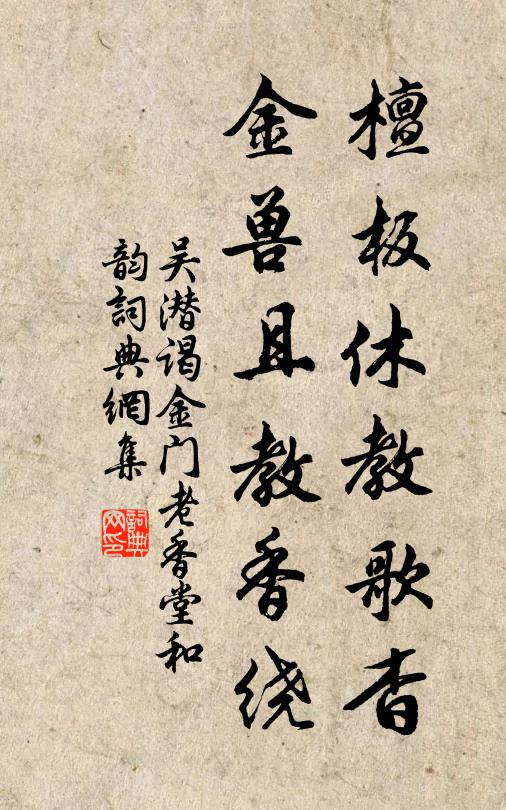 檀板休教歌杳
金兽且教香绕
吴潜谒金门老香堂和
韵词典網集
詞典网印